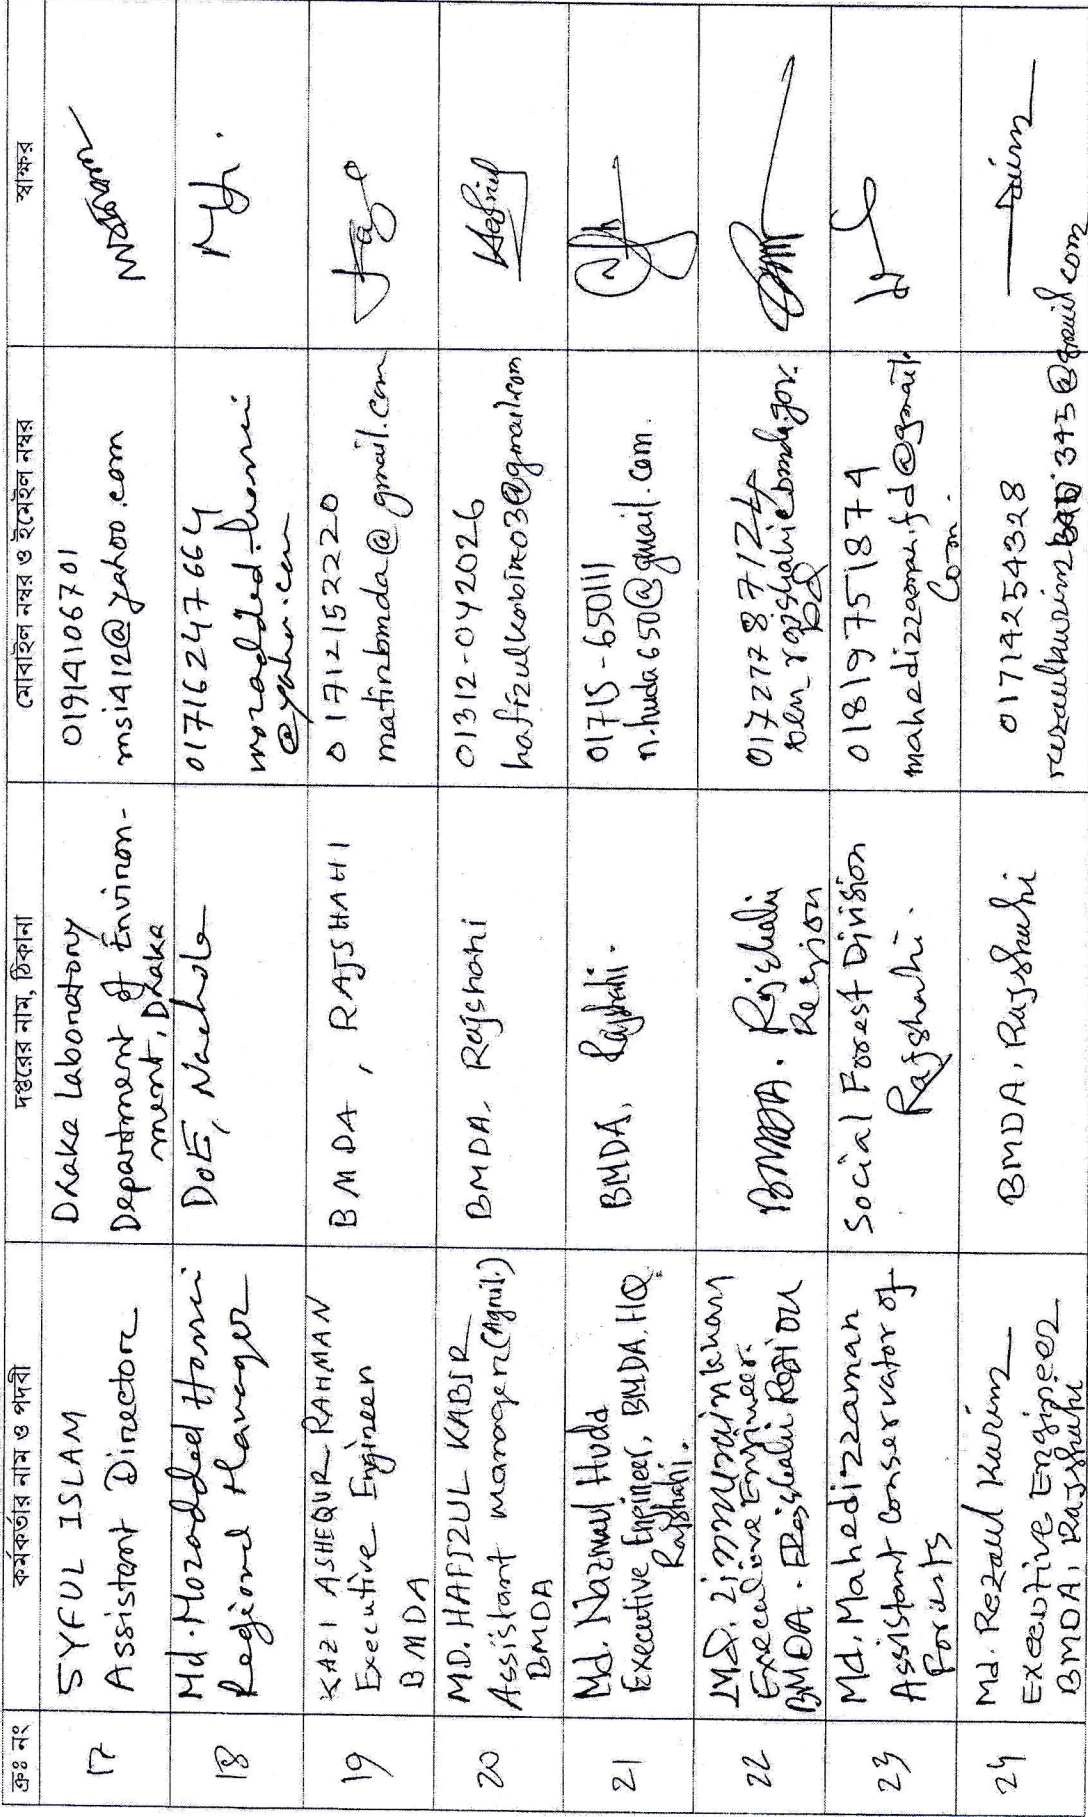 ক্রঃ নং
কর্মকর্তার নাম ও পদবী
দপ্তরের নাম, ঠিকানা
মোবাইল নম্বর ও ইমেইল নম্বর
স্বাক্ষর
17
SYFUL ISLAM
Assistant Director
Dhaka Laboratory
Department of Environ-
ment, Dhaka
01914106701
msi412@yahoo.com
18
Md. Mozadded Hanni
Regional Manager
DoE, Nachole
01716247664
@yahoo.com
19
KAZI ASHEQUR RAHMAN
Executive Engineer
BMDA
BMDA, RAJSHAHI
01712152220
matinbmda@gmail.com
20
MD. HAFIZUL KABIR
Assistant manager (Agril.)
BMDA
BMDA, Rajshahi
01312-042026
hafizulkabir03@gmail.com
Hafizul
21
Md. Nazmul Huda
Executive Engineer, BMDA, HQ.
Rajshahi.
BMDA, Rajshahi.
01715-650111
n.huda650@gmail.com.
22
Executive Engineer.
BMDA. Rajshahi Region
BMDA. Rajshahi
Region
01727787124
23
Md. Mahedizzaman
Assistant Conservator of
Forests
Social Forest Division
Rajshahi.
01819751874
mahedizzaman.fd@gmail.
Com.
24
Md. Rezaul Karim
Executive Engineer
BMDA, Rajshahi
BMDA, Rajshahi
01714254328